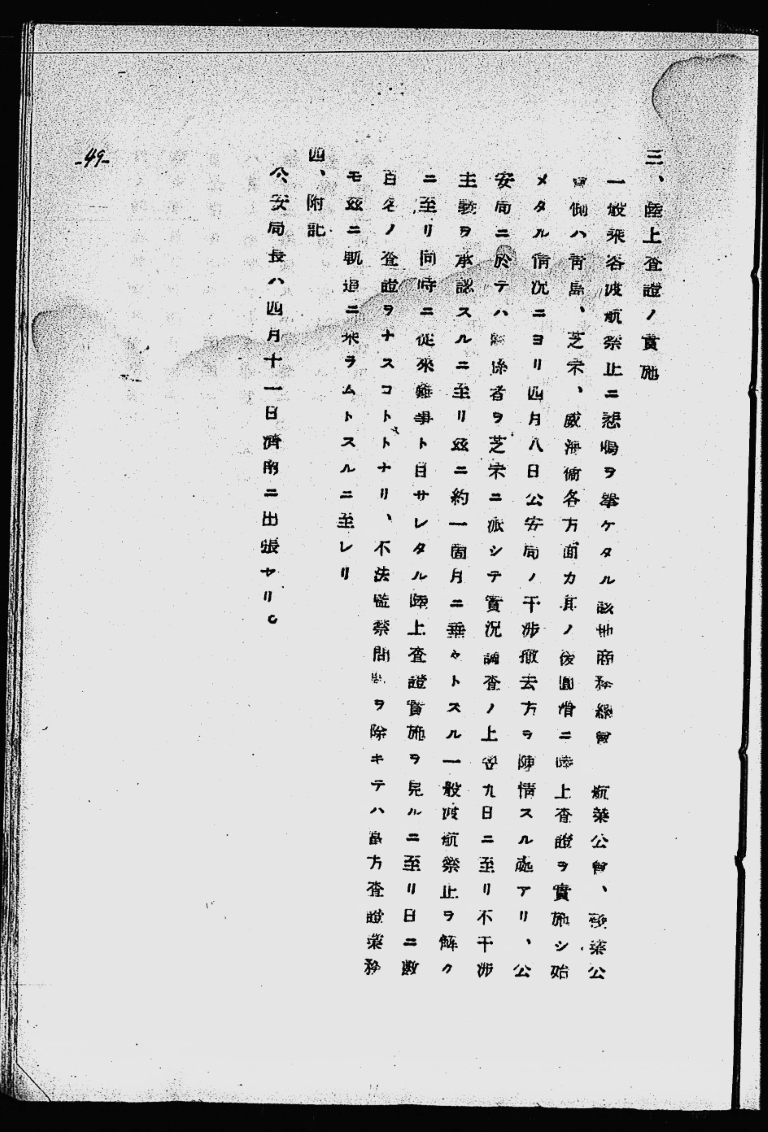 三、陸上査證ノ實施
一般乘客渡航禁止ニ悲鳴ヲ擧ケタル該地商務總會 航業公會、 業公
會側ハ靑島、芝罘、威海衞各方面カ其ノ後圓滑ニ陸上査證ヲ實施シ始
メタル情况ニヨリ四月八日公安局ノ干涉撤去方ヲ陳情スル處アリ、公
安局ニ於テハ關係者ヲ芝罘ニ派シテ實况調査ノ上翌九日ニ至リ不干涉
主義ヲ承認スルニ至リ茲ニ約一箇月ニ垂ントスル一般渡航禁止ヲ解ク
ニ至リ同時ニ從來難事ト目サレタル陸上査證實施ヲ見ルニ至リ日ニ數
百名ノ査證ヲナスコトトナリ、不法監禁問題ヲ除キテハ當方査證業務
モ茲ニ軌道ニ乘ラムトスルニ至レリ
四、附記
公安局長ハ四月十一日濟南ニ出張セリ。
-49-